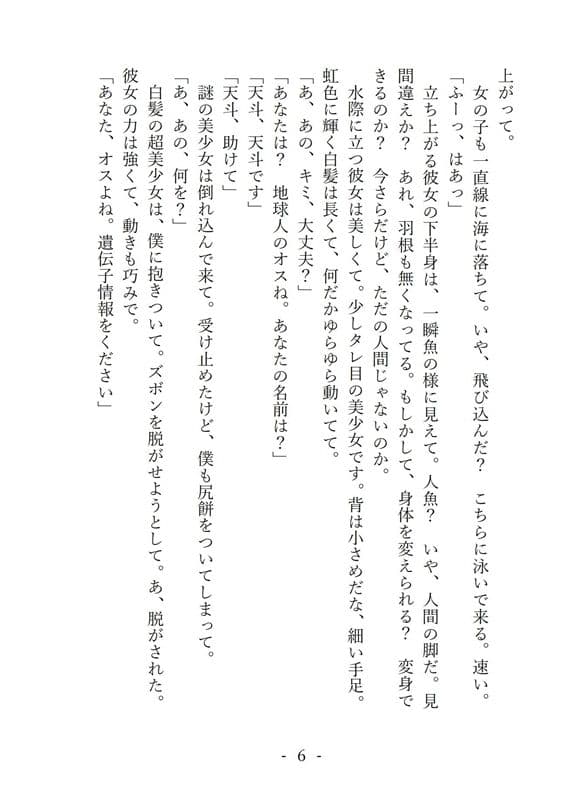 上がって。
　女の子も一直線に海に落ちて。いや、飛び込んだ？　こちらに泳いで来る。速い。
「ふーっ、はあっ」
　立ち上がる彼女の下半身は、一瞬魚の様に見えて。人魚？　いや、人間の脚だ。見
間違えか？　あれ、羽根も無くなってる。もしかして、身体を変えられる？　変身で
きるのか？　今さらだけど、ただの人間じゃないのか。
　水際に立つ彼女は美しくて。少しタレ目の美少女です。背は小さめだな、細い手足。
虹色に輝く白髪は長くて、何だかゆらゆら動いてて。
「あ、あの、キミ、大丈夫？」
「あなたは？　地球人のオスね。あなたの名前は？」
「天斗、天斗です」
「天斗、助けて」
　謎の美少女は倒れ込んで来て。受け止めたけど、僕も尻餅をついてしまって。
「あ、あの、何を？」
　白髪の超美少女は、僕に抱きついて。ズボンを脱がせようとして。あ、脱がされた。
彼女の力は強くて、動きも巧みで。
「あなた、オスよね。遺伝子情報をください」
- 6 -